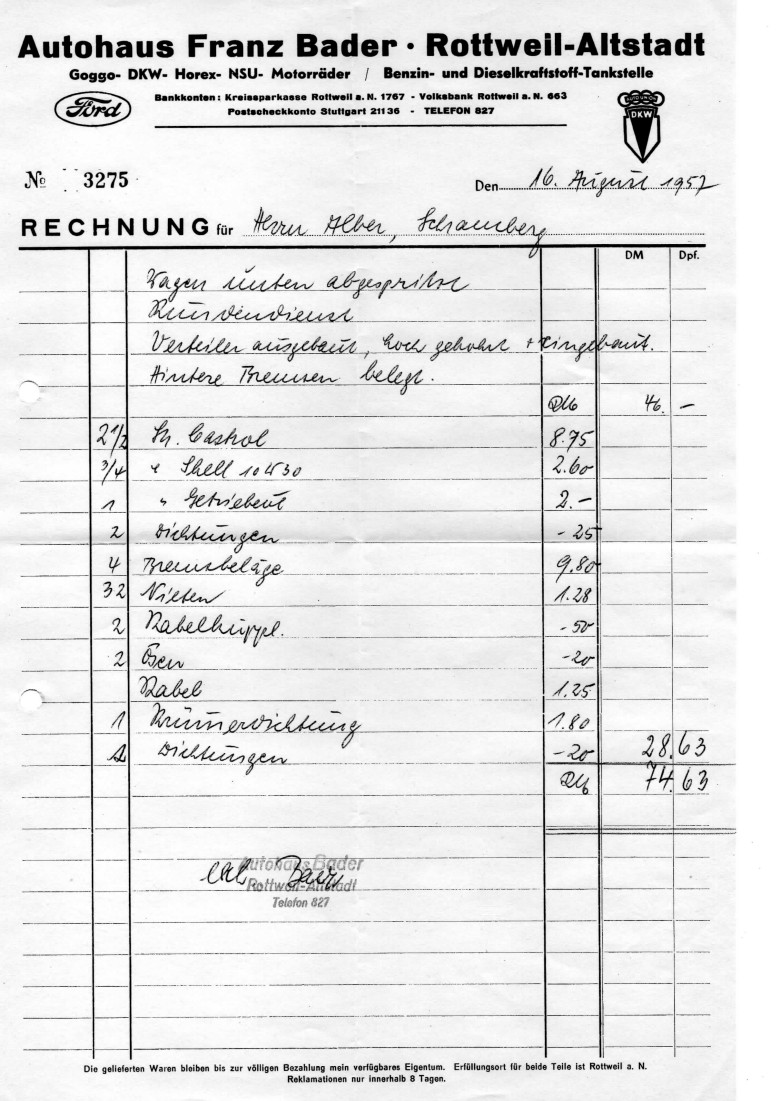 Autohaus Franz Bader · Rottweil-Altstadt
Goggo- DKW- Horex- NSU- Motorräder / Benzin- und Dieselkraftstoff-Tankstelle
Ford
Bankkonten: Kreissparkasse Rottweil a. N. 1767 - Volksbank Rottweil a. N. 663
Postscheckkonto Stuttgart 21136 - TELEFON 827
DKW
No 3275
Den 16. August 1957
RECHNUNG für Herrn Alber, Schramberg
DM Dpf.
Wagen unten abgespritzt
Kundendienst
Verteiler ausgebaut, hoch gehohnt + eingebaut.
Hintere Bremsen belegt.
DM 46. —
2 1/2 Castrol 8.75
3/4 " Shell 10W30 2.60
1 " Getriebeöl 2.—
2 Dichtungen -25
4 Bremsbeläge 9.80
32 Nieten 1.28
2 Kabelkuppl. -50
2 Ösen -20
Kabel 1.25
1 Krümerdichtung 1.80
Dichtungen -20 28.63
DM 74.63
Autohaus Bader
Rottweil-Altstadt
Telefon 827
Bader
Die gelieferten Waren bleiben bis zur völligen Bezahlung mein verfügbares Eigentum. Erfüllungsort für beide Teile ist Rottweil a. N.
Reklamationen nur innerhalb 8 Tagen.